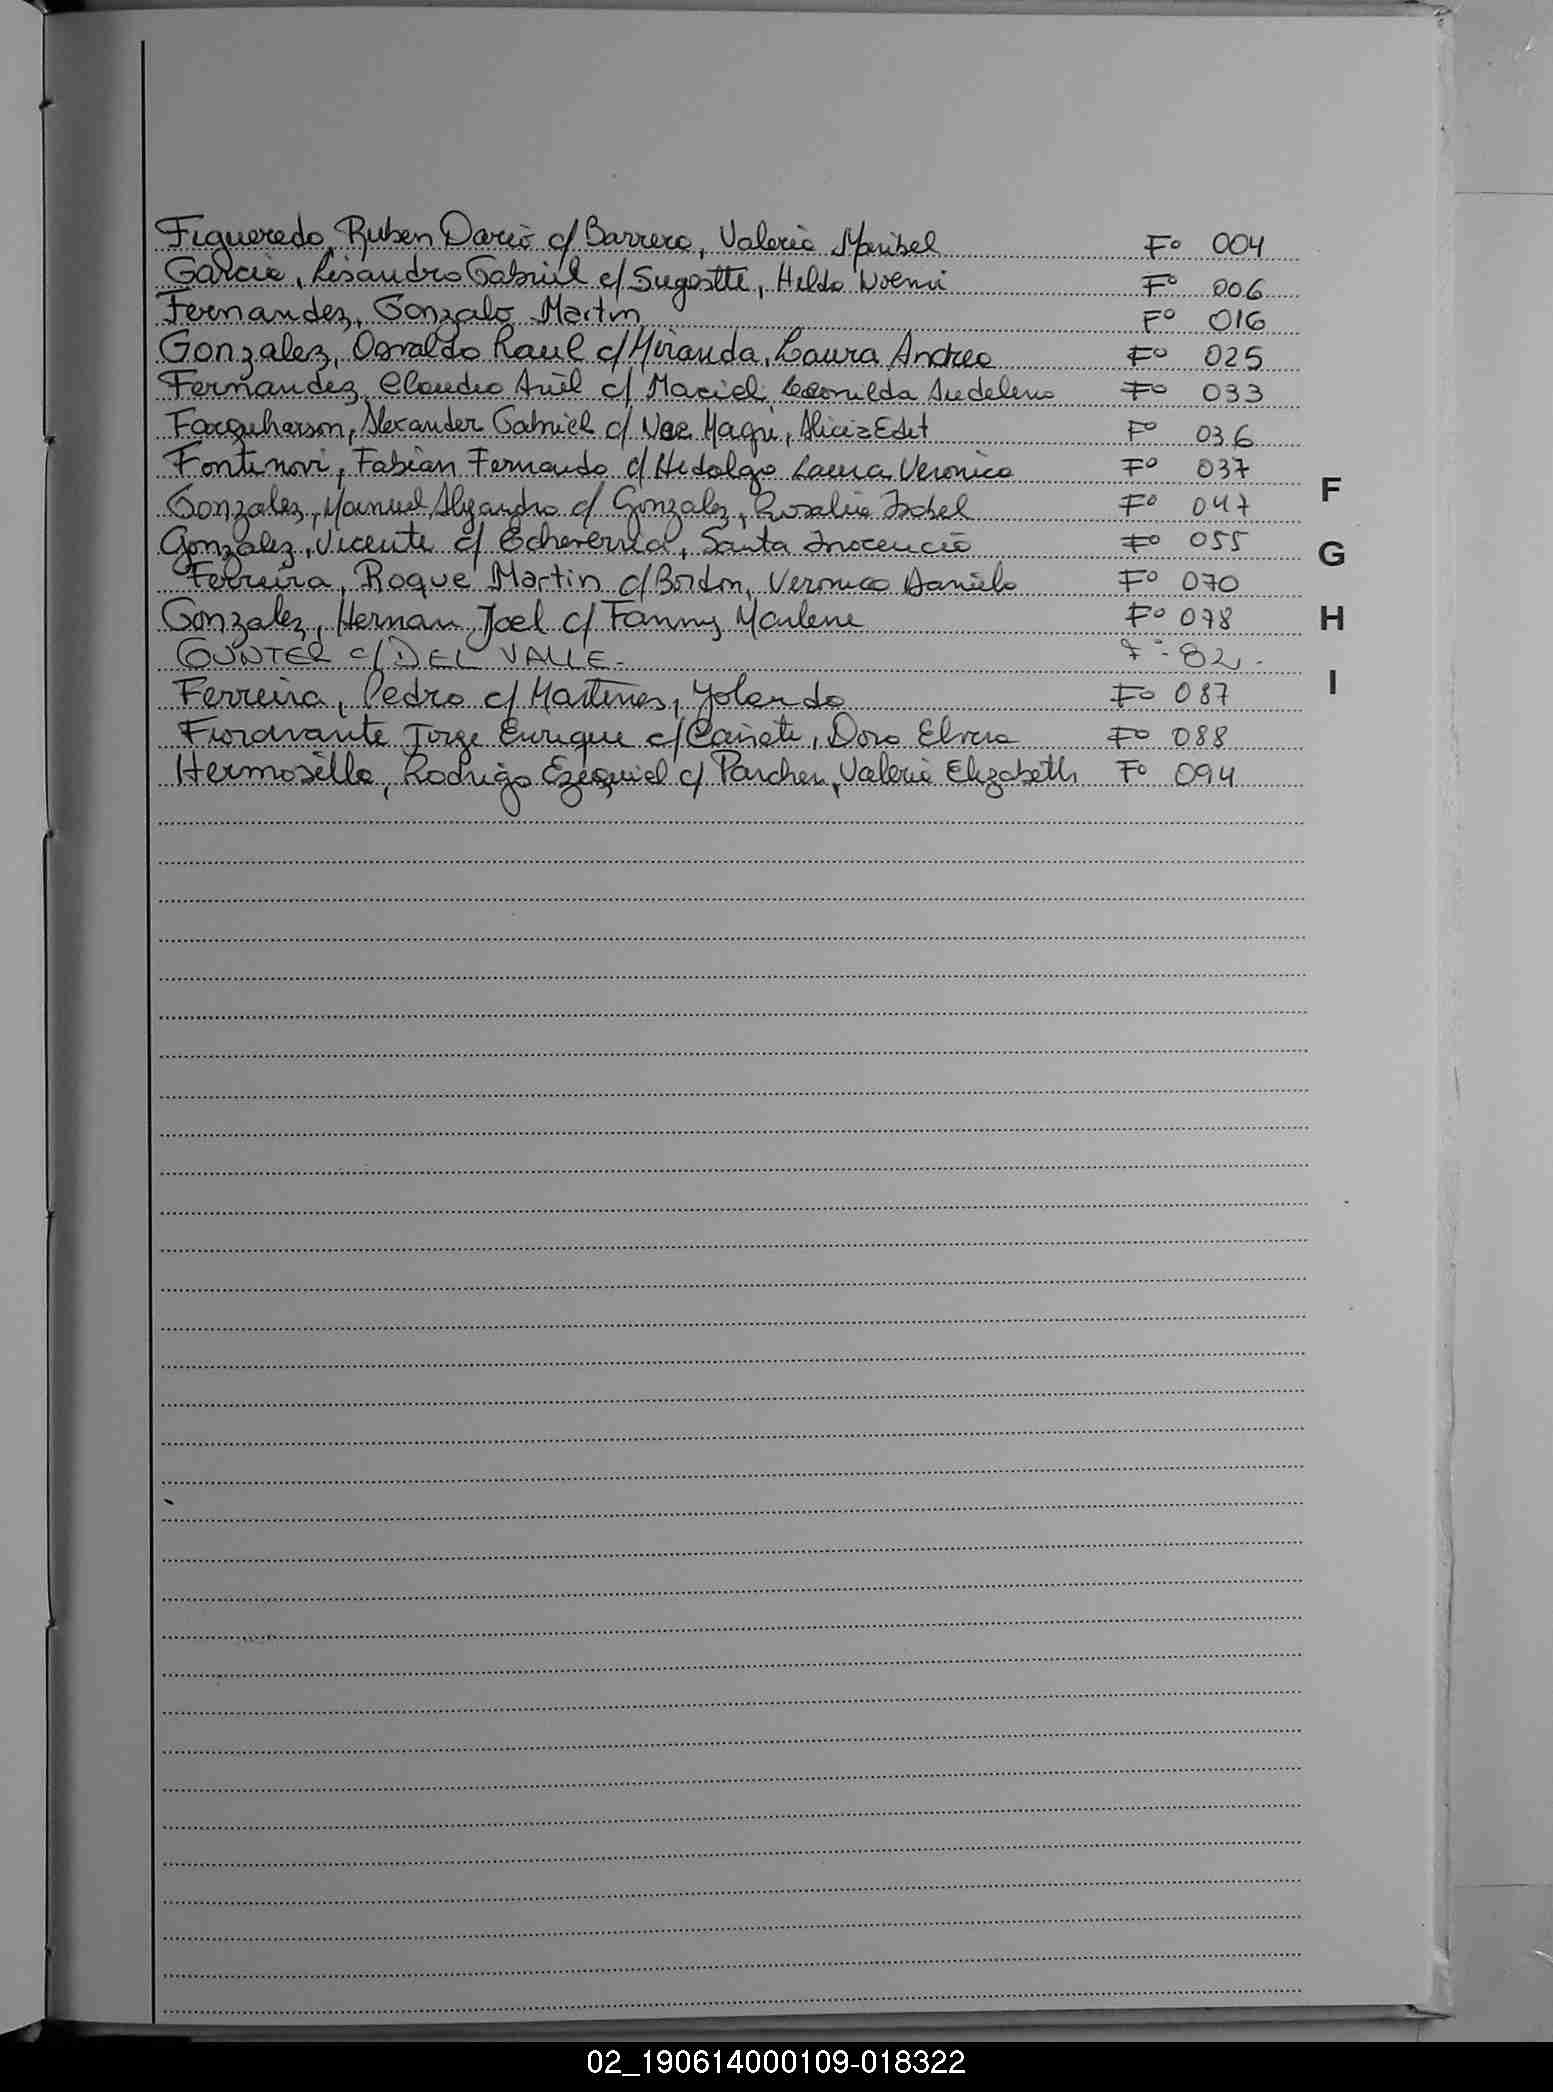 Figueredo, Ruben Dario c/ Barrero, Valeria Maribel Fº 004
Garcia, Lisandro Gabriel c/ Sugastti, Hilda Noemi Fº 006
Fernandez, Gonzalo Martin Fº 016
Gonzalez, Osvaldo Raul c/ Miranda, Laura Andrea Fº 025
Fernandez, Claudio Ariel c/ Maciel, Leonilda Fº 033
Farquharson, Alexander Gabriel c/ Alicia Edit Fº 036
Fontinovi, Fabian Fernando c/ Hidalgo Laura Veronica Fº 037
Gonzalez, Manuel Alejandro c/ Gonzalez, Rosalia Isabel Fº 047
Gonzalez, Vicente c/ Echeverria, Santa Inocencia Fº 055
Ferreira, Roque Martin c/ Bordon, Veronica Daniela Fº 070
Gonzalez, Hernan Joel c/ Fanny Marlene Fº 078
GUNTER c/ DEL VALLE.- Fº 82.-
Ferreira, Pedro c/ Martines, Yolanda Fº 087
Fioravante Jorge Enrique c/ Cañete, Dora Elvira Fº 088
Hermosilla, Rodrigo Ezequiel c/ Parchen, Valeria Elizabeth Fº 094
F
G
H
I
02_190614000109-018322